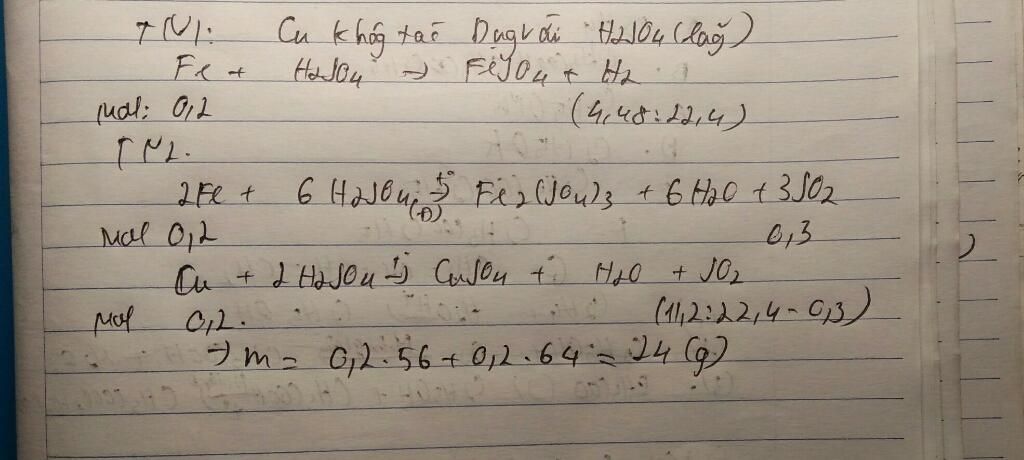 TN1: Cu không tác Dụng với H2SO4 (loãng)
Fe + H2SO4 → FeSO4 + H2
mol: 0,2 (4,48:22,4)
TN2.
2Fe + 6 H2SO4 (Đ) t°→ Fe2(SO4)3 + 6 H2O + 3SO2
mol 0,2 0,3
Cu + 2 H2SO4 t°→ CuSO4 + H2O + SO2
mol 0,2. (11,2:22,4-0,3)
→ m = 0,2.56 + 0,2.64 = 24 (g)